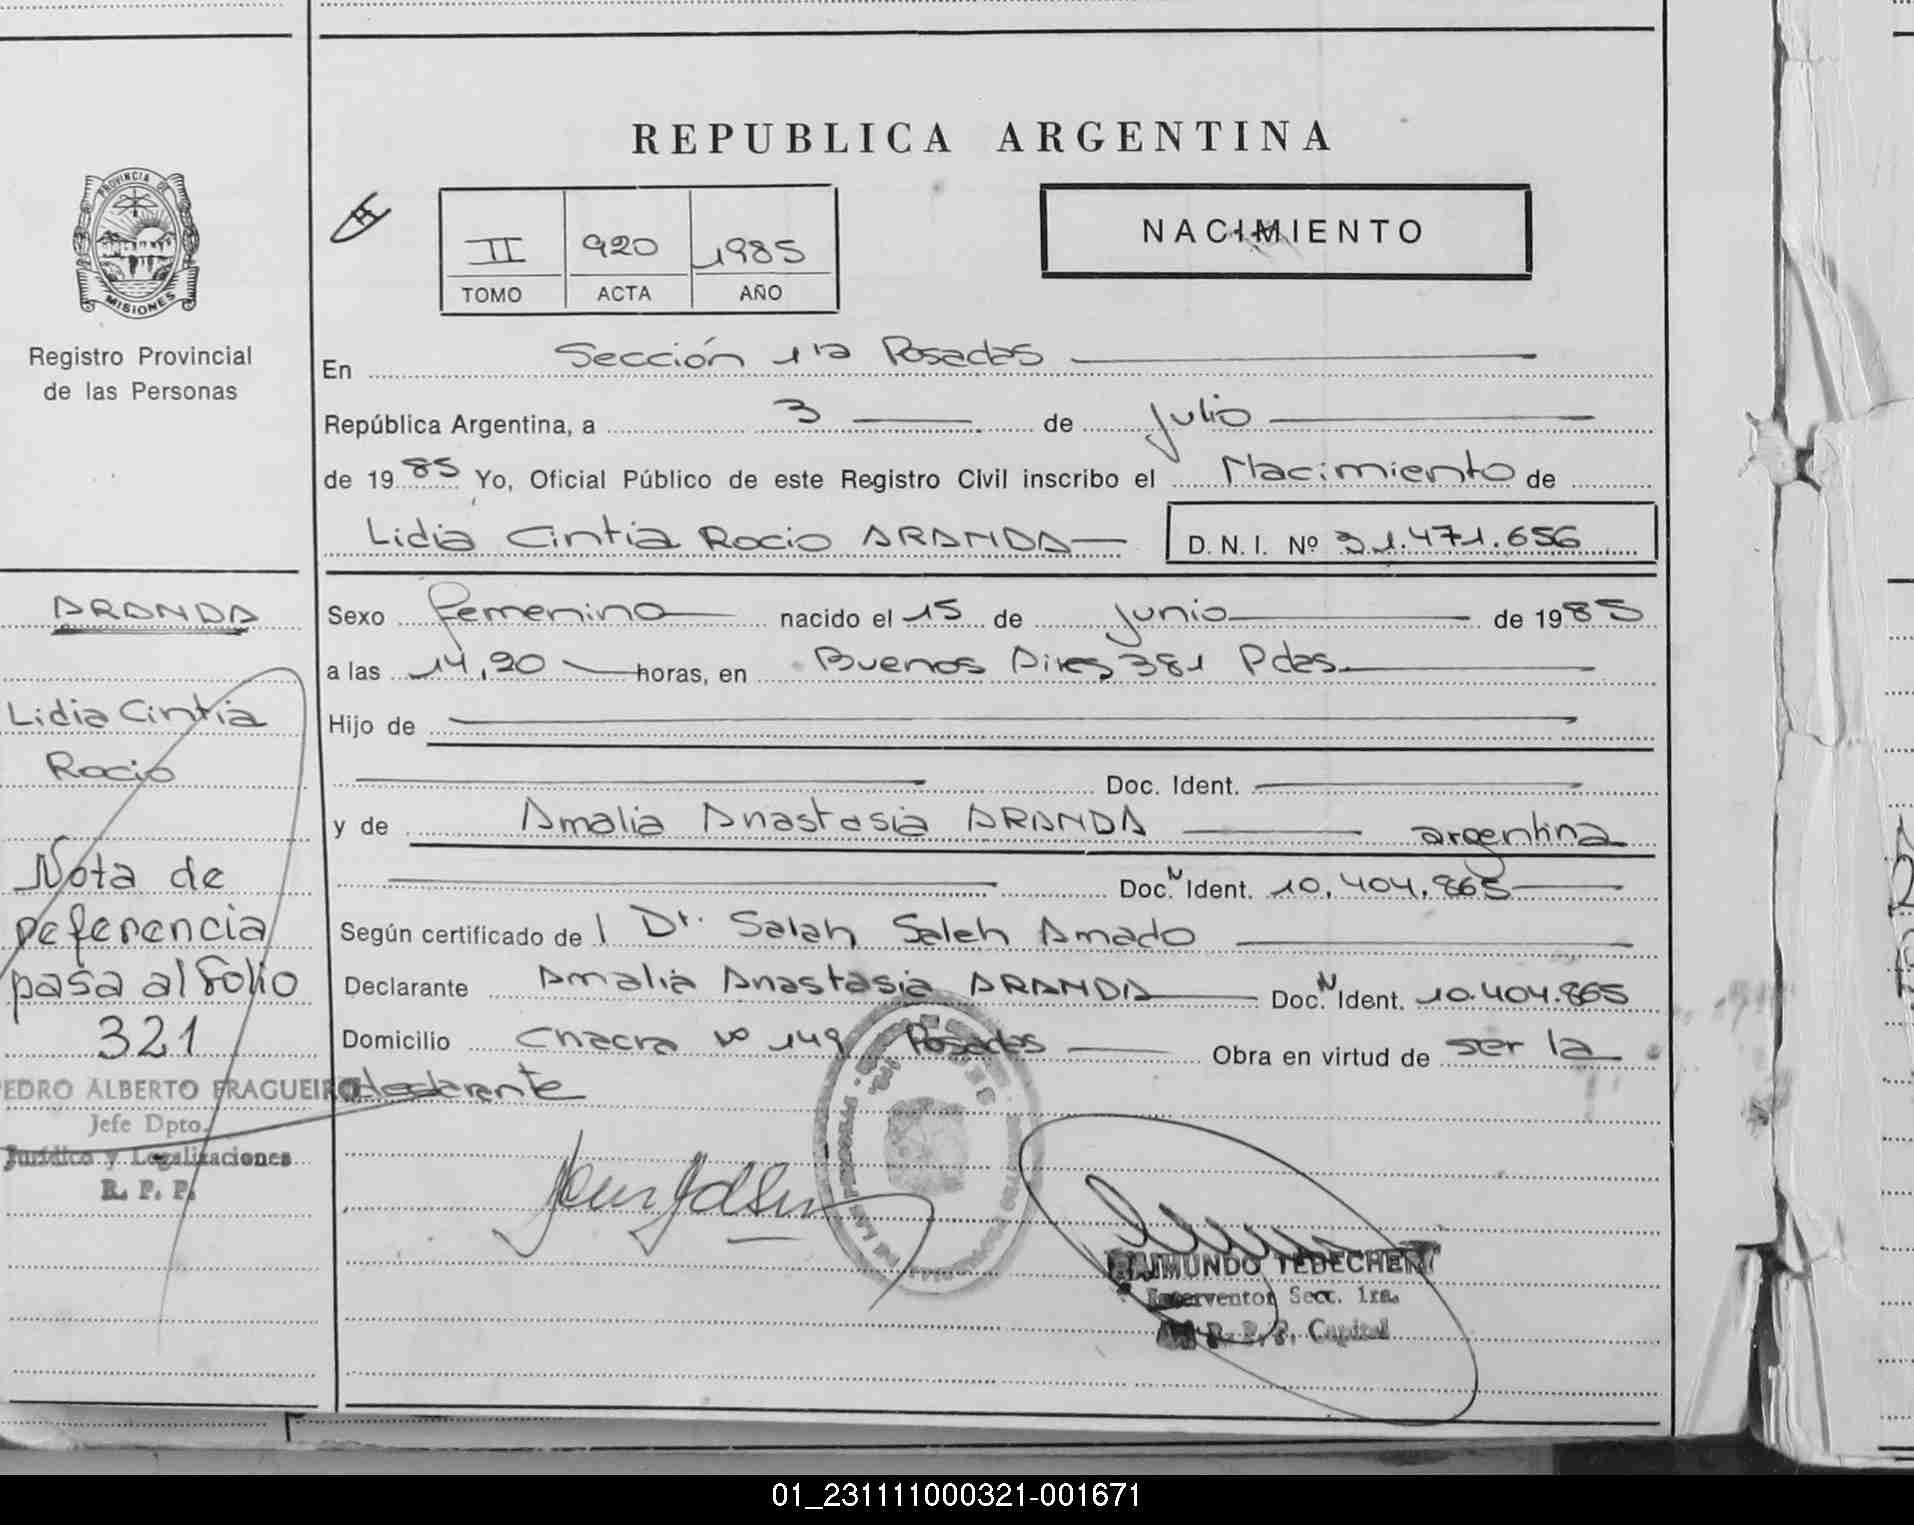 REPUBLICA ARGENTINA
PROVINCIA DE
MISIONES
Registro Provincial
de las Personas
II 920 1985
TOMO ACTA AÑO
NACIMIENTO
En Sección 1ra Posadas
República Argentina, a 3 de Julio
de 1985 Yo, Oficial Público de este Registro Civil inscribo el Nacimiento de
Lidia Cintia Rocio ARANDA D. N. I. Nº 31.471.656
Sexo femenino nacido el 15 de Junio de 1985
a las 14,20 horas, en Buenos Aires 381 Pdas.
Hijo de
Doc. Ident.
y de Amalia Anastasia ARANDA argentina
Doc. N Ident. 10.404.865
Según certificado de l Dr. Salah Saleh Amado
Declarante Amalia Anastasia ARANDA Doc. N Ident. 10.404.865
Domicilio Chacra Nº 149 Posadas Obra en virtud de ser la
declarante
ARANDA
Lidia Cintia
Rocio
Nota de
referencia
pasa al folio
321
PEDRO ALBERTO FRAGUEIRO
Jefe Dpto.
Jurídico y Legalizaciones
R. P. P.
RAIMUNDO
Interventor Secc. 1ra.
R. P. P. Capital
01_231111000321-001671